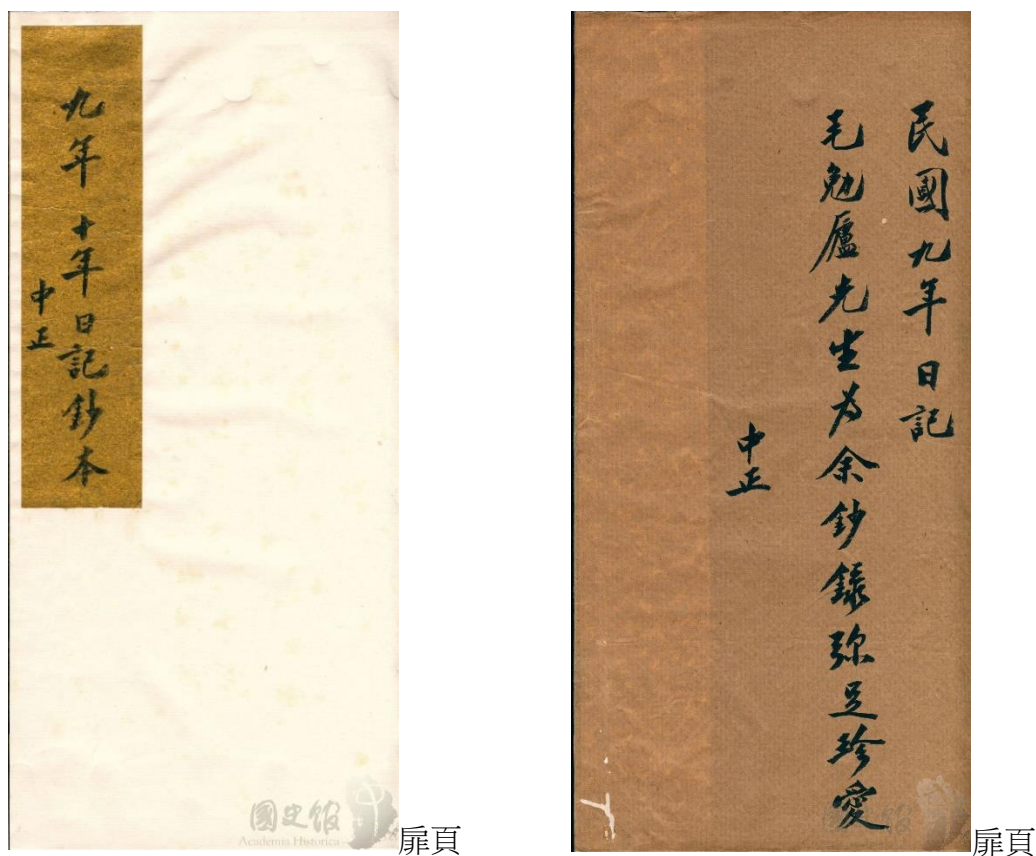 九年 十年日記鈔本
中正
國史館
Academia Historica
扉頁
民國九年日記
毛勉廬先生為余鈔錄彌足珍愛
中正
扉頁